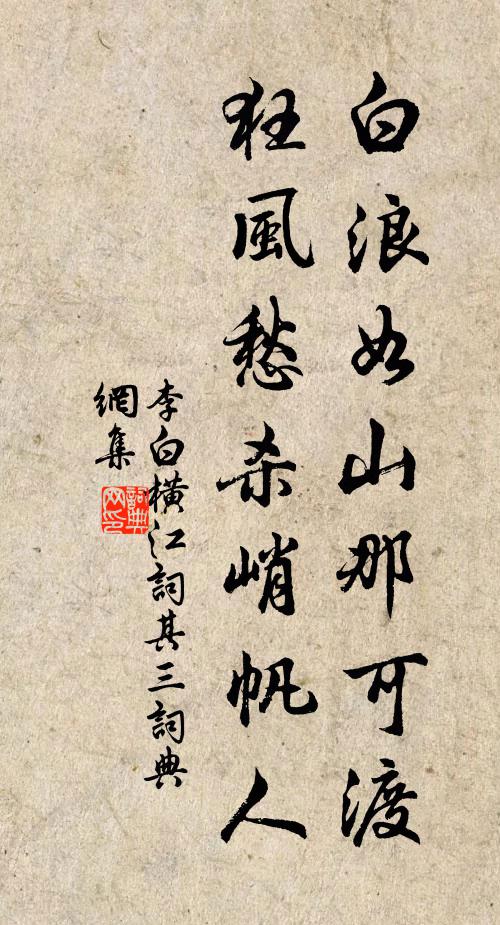 白浪如山那可渡
狂風愁杀峭帆人
李白橫江詞其三詞典
網集
詞典
网印